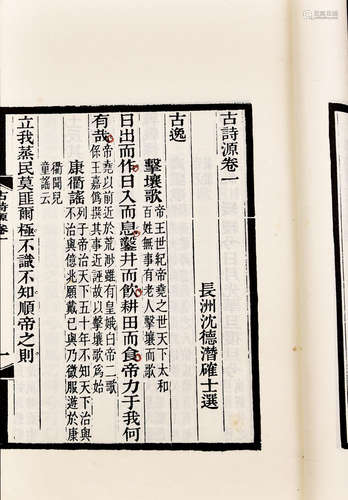 古詩源卷一
長洲沈德潛確士選
古逸
擊壤歌 帝王世紀帝堯之世天下太和
百姓無事有老人擊壤而歌
日出而作日入而息鑿井而飲耕田而食帝力于我何
有哉 帝堯以前近於荒渺雖有皇娥白帝二歌
係王嘉偽撰其事近誣故以擊壤歌為始
康衢謠 列子帝治天下五十年不知天下治與
不治與億兆願戴己與乃微服遊於康
衢聞兒
童謠云
立我蒸民莫匪爾極不識不知順帝之則
古詩源卷一
一